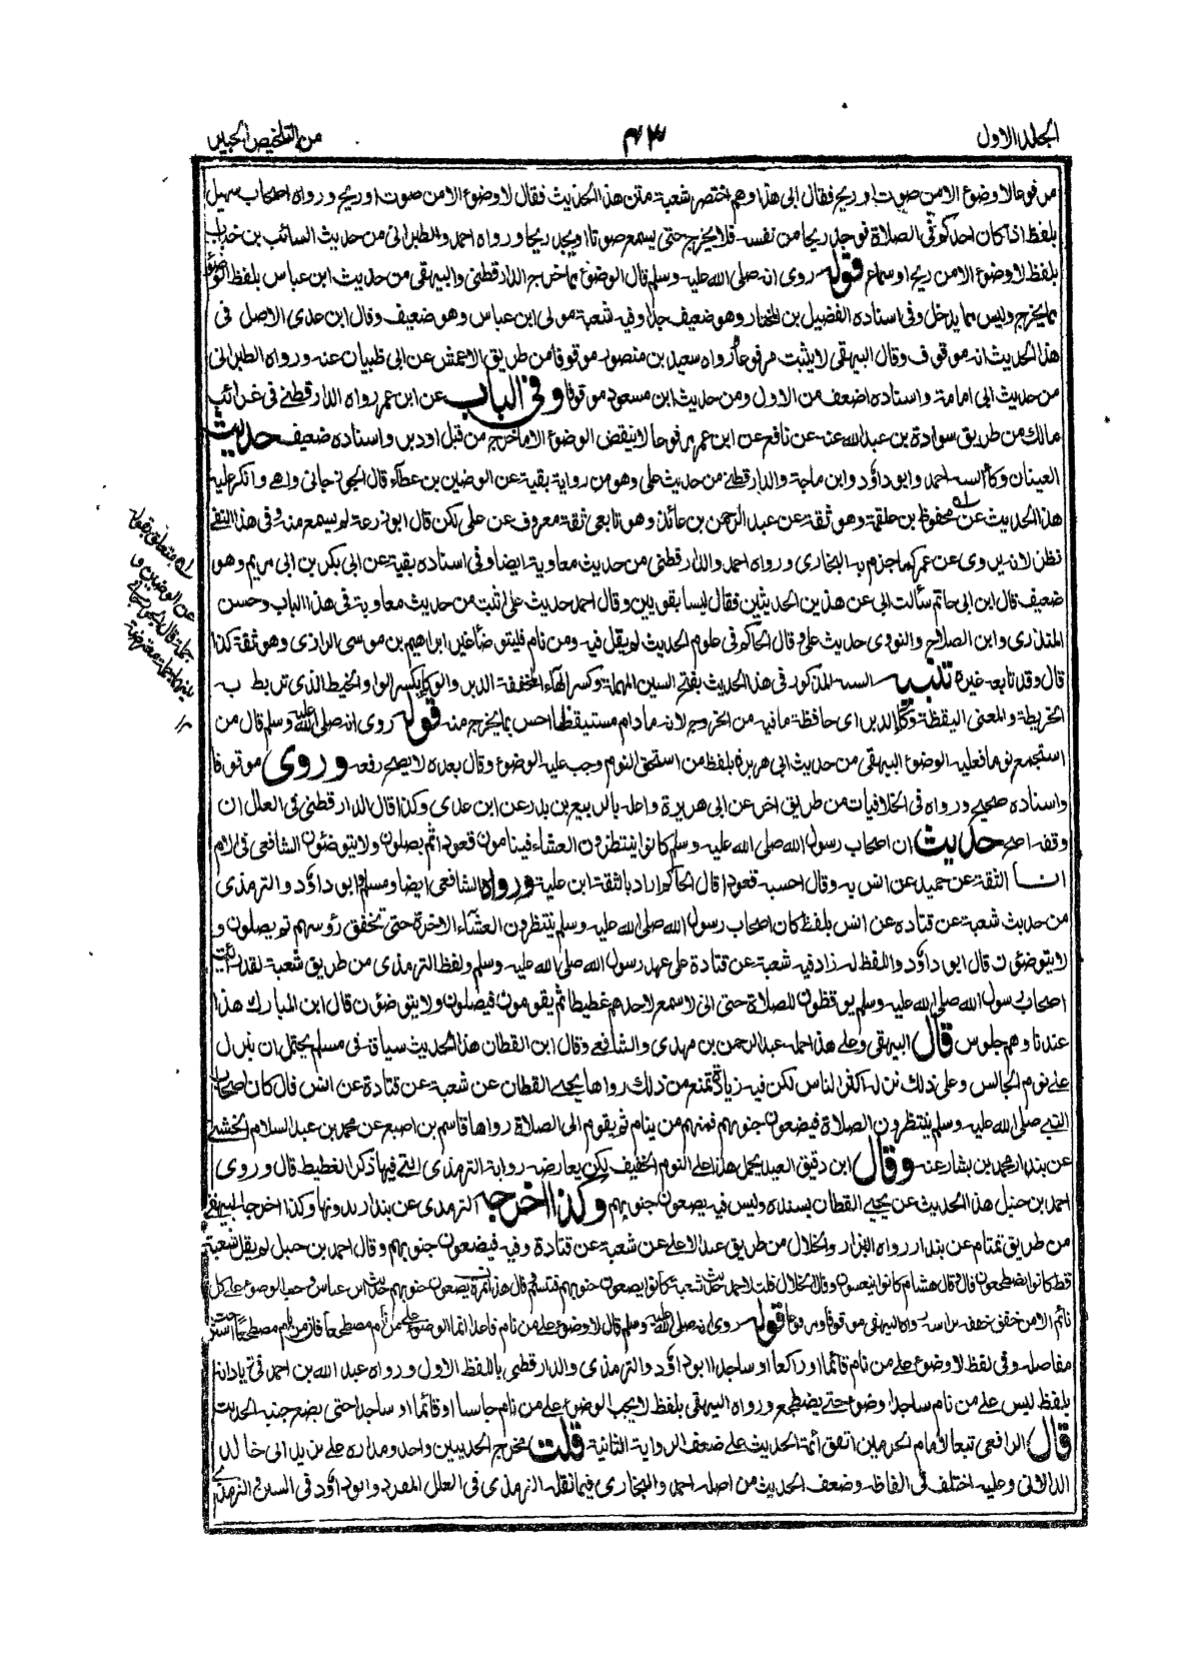 الجلد الاول
٤٣
من التلخيص الحبير
مرفوعا لا وضوء الا من صوت او ريح فقال ابى هذا وهم اختصر شعبة متن هذا الحديث فقال لا وضوء الا من صوت او ريح ورواه اصحاب سهيل
بلفظ اذا كان احدكم فى الصلاة فوجد ريحا من نفسه فلا يخرج حتى يسمع صوتا او يجد ريحا ورواه احمد والطبرانى من حديث السائب بن خباب
بلفظ لا وضوء الا من ريح او سماع قوله روى انه صلى الله عليه وسلم قال الوضوء مما خرج الدارقطنى والبيهقى من حديث ابن عباس بلفظ الوضوء
مما يخرج وليس مما يدخل وفى اسناده الفضيل بن المختار وهو ضعيف جدا وفيه شعبة مولى ابن عباس وهو ضعيف وقال ابن عدى الاصل فى
هذا الحديث انه موقوف وقال البيهقى لا يثبت مرفوعا ورواه سعيد بن منصور موقوفا من طريق الاعمش عن ابى ظبيان عنه ورواه الطبرانى
من حديث ابى امامة واسناده اضعف من الاول ومن حديث ابن مسعود موقوفا وفى الباب عن ابن عمر رواه الدارقطنى فى غرائب
مالك من طريق سوادة بن عبد الله عنه عن نافع عن ابن عمر مرفوعا لا ينقض الوضوء الا ما خرج من قبل او دبر واسناده ضعيف حديث
العينان وكاء السه احمد وابو داؤد وابن ماجة والدارقطنى من حديث على وهو من رواية بقية عن الوضين بن عطاء قال الجوزجانى واهى وانكر عليه
هذا الحديث عن محفوظ بن علقمة وهو ثقة عن عبد الرحمن بن عائذ وهو تابعى ثقة معروف عن على لكن قال ابو زرعة لم يسمع منه وفى هذا النفى
نظر لانه يروى عن عمر كما جزم به البخارى ورواه احمد والدارقطنى من حديث معاوية ايضا وفى اسناده بقية عن ابى بكر بن ابى مريم وهو
ضعيف قال ابن ابى حاتم سألت ابى عن هذين الحديثين فقال ليسا بقويين وقال احمد حديث على اثبت من حديث معاوية فى هذا الباب وحسن
المنذرى وابن الصلاح والنووى حديث على وقال الحاكم فى علوم الحديث لم يقل فيه ومن نام فليتوضأ غير ابراهيم بن موسى الرازى وهو ثقة كذا
قال وقد تابعه غيره تنبيه السه المذكور فى هذا الحديث بفتح السين المهملة وكسر الهاء المخففة الدبر والوكاء بكسر الواو الخيط الذى تربط به
الخريطة والمعنى اليقظة وكاء الدبر اى حافظة ما فيه من الخروج لانه ما دام مستيقظا احس بما يخرج منه قوله روى انه صلى الله عليه وسلم قال من
استجمع نوما فعليه الوضوء البيهقى من حديث ابى هريرة بلفظ من استحق النوم وجب عليه الوضوء وقال بعده لا يصح رفعه وروى موقوفا
واسناده صحيح ورواه فى الخلافيات من طريق اخر عن ابى هريرة واعله بالربيع بن بدر عن ابن عدى وكذا قال الدارقطنى فى العلل ان
وقفه اصح حديث ان اصحاب رسول الله صلى الله عليه وسلم كانوا ينتظرون العشاء فينامون قعودا ثم يصلون ولا يتوضئون الشافعى فى الام
انا الثقة عن حميد عن انس به وقال احسبه قعودا قال الحاكم اراد بالثقة ابن علية ورواه الشافعى ايضا ومسلم وابو داؤد والترمذى
من حديث شعبة عن قتادة عن انس بلفظ كان اصحاب رسول الله صلى الله عليه وسلم ينتظرون العشاء الاخرة حتى تخفق رؤسهم ثم يصلون و
لا يتوضئون قال ابو داؤد واللفظ له زاد فيه شعبة عن قتادة على عهد رسول الله صلى الله عليه وسلم ولفظ الترمذى من طريق شعبة لقد رأيت
اصحاب رسول الله صلى الله عليه وسلم يوقظون للصلاة حتى انى لاسمع لاحدهم غطيطا ثم يقومون فيصلون ولا يتوضئون قال ابن المبارك هذا
عندنا وهم جلوس قال البيهقى وعلى هذا حمله عبد الرحمن بن مهدى والشافعى وقال ابن القطان هذا الحديث سياقه فى مسلم يحتمل ان ينزل
على نوم الجالس وعلى ذلك نزله اكثر الناس لكن فيه زيادة تمنع من ذلك رواها يحيى القطان عن شعبة عن قتادة عن انس قال كان اصحاب
النبى صلى الله عليه وسلم ينتظرون الصلاة فيضعون جنوبهم فمنهم من ينام ثم يقوم الى الصلاة رواها قاسم بن اصبع عن محمد بن عبد السلام الخشنى
عن بندار محمد بن بشار عنه وقال ابن دقيق العيد يحمل هذا على النوم الخفيف لكن يعارضه رواية الترمذى التى فيها ذكر الغطيط قال وروى
احمد بن حنبل هذا الحديث عن يحيى القطان بسنده وليس فيه يضعون جنوبهم وكذا اخرجه الترمذى عن بندار بدونها وكذا اخرجه البيهقى
من طريق تمتام عن بندار ورواه البزار والخلال من طريق عبد الاعلى عن شعبة عن قتادة وفيه فيضعون جنوبهم وقال احمد بن حنبل لم يقل شعبة
قط كانوا يضطجعون قال وقال هشام كانوا ينعسون وقال الخلال قلت لاحمد حديث شعبة كانوا يضعون جنوبهم فتبسم وقال هذا بمرة يضعون جنوبهم حديث ابن عباس وجب الوضوء على كل
نائم الا من خفق خفقة براسه رواه البيهقى موقوفا ومرفوعا قوله روى انه صلى الله عليه وسلم قال لا وضوء على من نام قاعدا انما الوضوء على من نام مضطجعا فان من نام مضطجعا استرخت
مفاصله وفى لفظ لا وضوء على من نام قائما او راكعا او ساجدا ابو داؤد والترمذى والدارقطنى باللفظ الاول ورواه عبد الله بن احمد فى زياداته
بلفظ ليس على من نام ساجدا وضوء حتى يضطجع ورواه البيهقى بلفظ لا يجب الوضوء على من نام جالسا او قائما او ساجدا حتى يضع جنبه الحديث
قال الرافعى تبعا لامام الحرمين اتفق ائمة الحديث على ضعف الرواية الثانية قلت مخرج الحديثين واحد ومداره على يزيد ابى خالد
الدالانى وعليه اختلف فى الفاظه وضعف الحديث من اصله احمد والبخارى فيما نقله الترمذى فى العلل المفرد وابو داؤد فى السنن والترمذى
له متعلق بقوله
عن الوضين و
جملة قال الجوزجانى
بينهما جملة معترضة
١٢